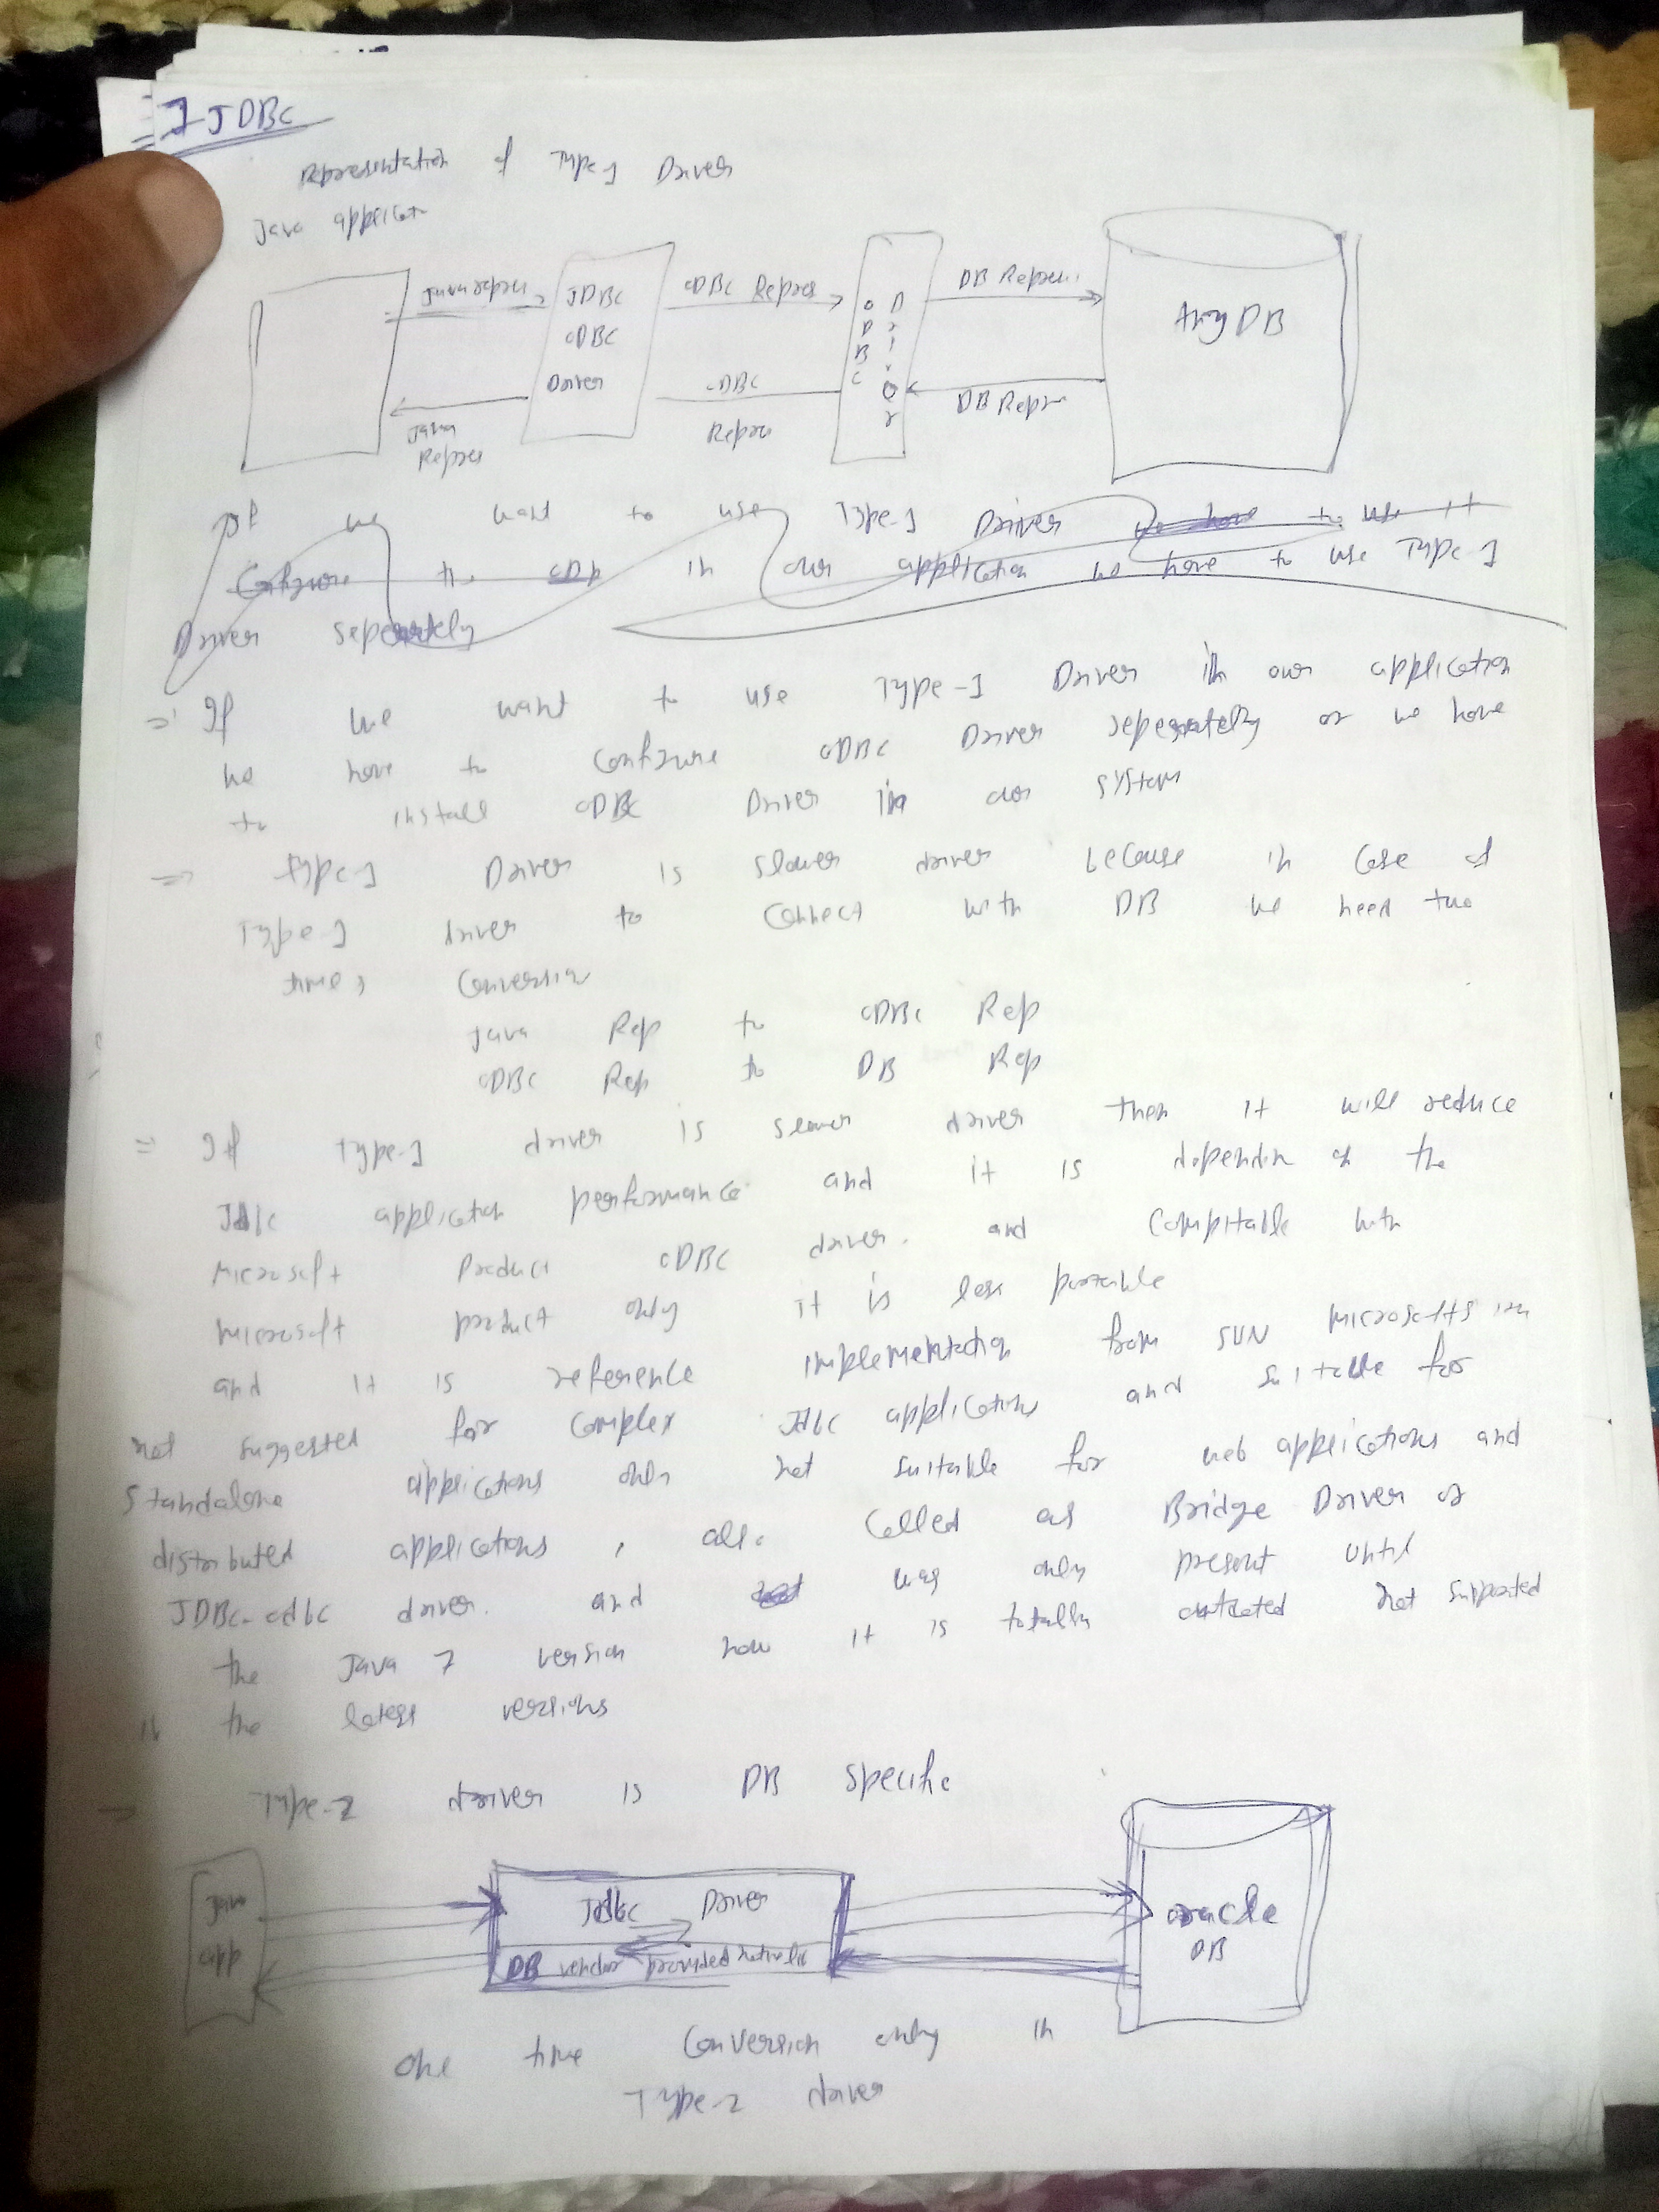 JDBC
Representation of Type-1 Driver
Java applicat
Java repres
JDBC
ODBC
Driver
ODBC Repres
ODBC
Driver
DB Repres.
Any DB
Java
Repres
ODBC
Repres
DB Repr
If we want to use Type-1 Driver we have to use it
Configure the ODB in our application we have to use Type-1
Driver seperately
=> If we want to use Type-1 Driver in our application
we have to Configure ODBC Driver seperately or we have
to install ODBC Driver in our system
=> Type-1 Driver is slower driver because in case of
Type-1 driver to connect with DB we need two
times Conversion
Java Rep to ODBC Rep
ODBC Rep to DB Rep
= If type-1 driver is slower driver then it will reduce
Jdbc application performance and it is dependen on the
Microsoft Product ODBC driver. and Compitable with
microsoft product only it is less portable
and it is reference implementation from SUN microsofts
not suggested for complex Jdbc applications and suitable for
standalone applications only not suitable for web applications and
distributed applications, also Called as Bridge Driver or
JDBC-odbc driver. and was only present until
the Java 7 version now it is totally outdated not supported
in the latest versions
=> Type-2 driver is DB Specific
Java
app
Jdbc Driver
DB vendor provided native lib
oracle
DB
One time Conversion only in
Type-2 driver